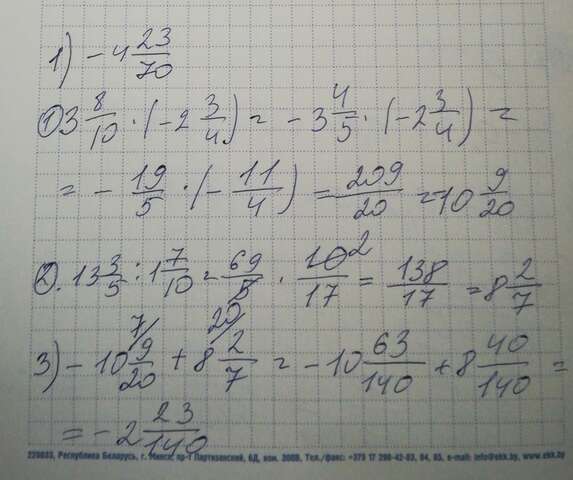 1) - 4 23/70
① 3 8/10 · (-2 3/4) = - 3 4/5 · (-2 3/4) =
= - 19/5 · (- 11/4) = 209/20 = 10 9/20
②. 13 3/5 : 1 7/10 = 69/5 · 10/17 2 = 138/17 = 8 2/7
7/ 20/
3) - 10 9/20 + 8 2/7 = - 10 63/140 + 8 40/140 =
= - 2 23/140
220033, Республика Беларусь, г. Минск, пр-т Партизанский, 6Д, ком. 200В, Тел./факс: +375 17 298-42-83, 84, 85, e-mail: info@ekk.by, www.ekk.by